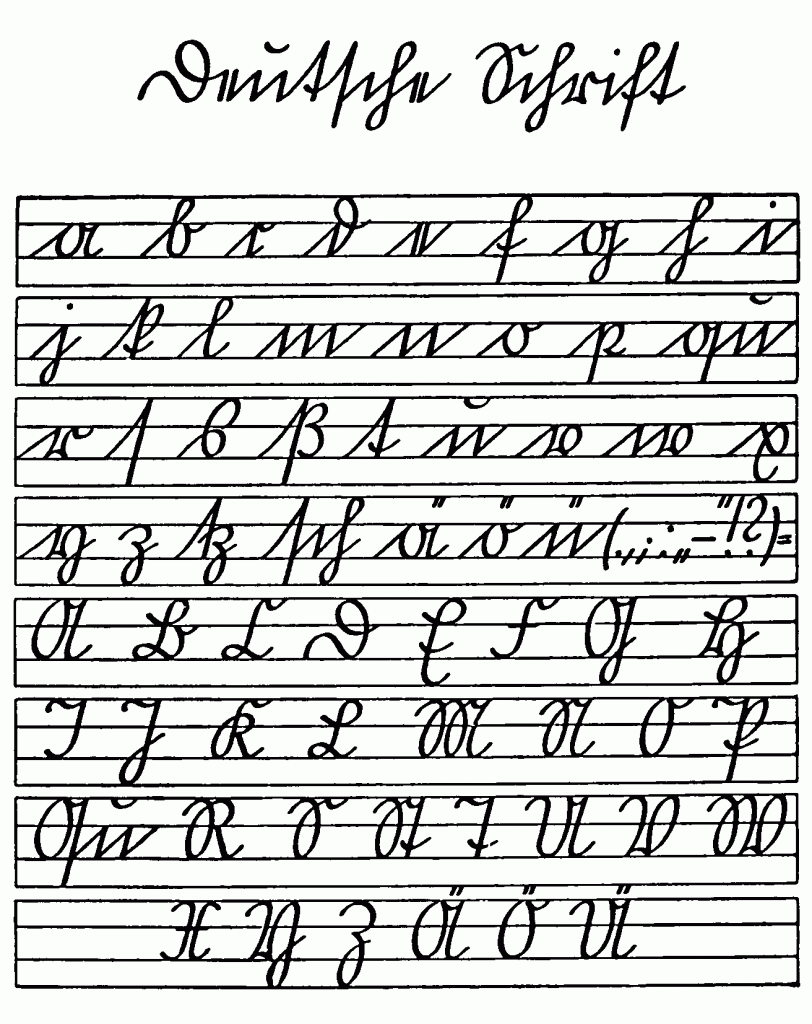 Deutsche Schrift
a b c d e f g h i
j k l m n o p qu
r ſ s ß t u v w x
y z tz ſch ä ö ü (.,;:„-"!?)=
A B C D E F G H
I J K L M N O P
Qu R S St T U V W
X Y Z Ä Ö Ü